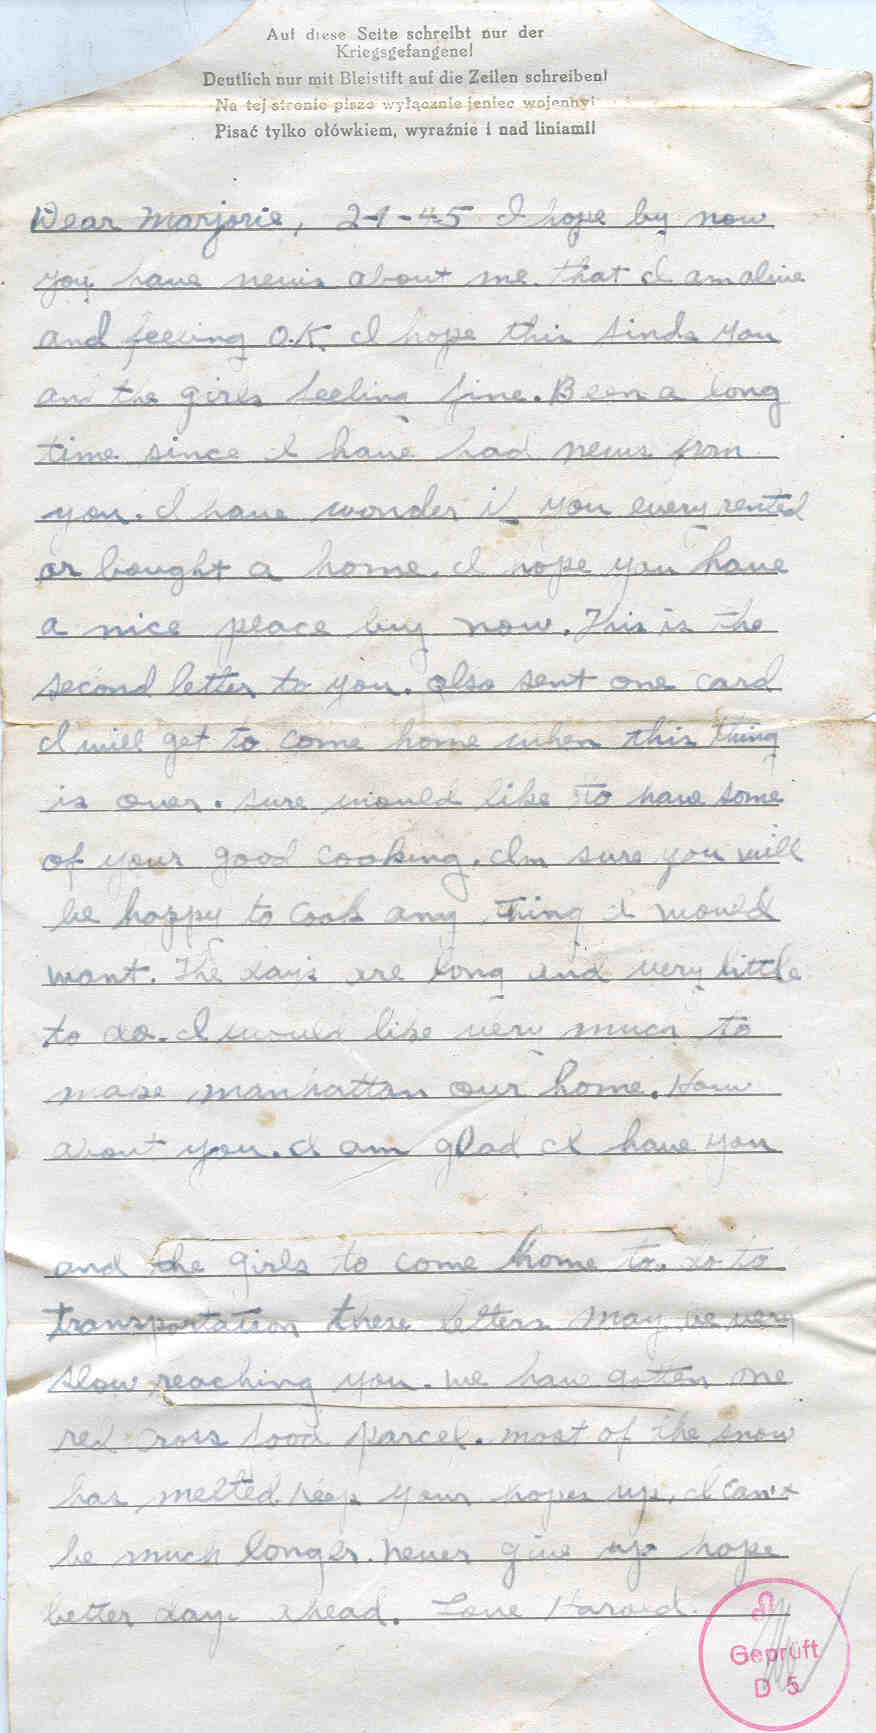 Auf diese Seite schreibt nur der
Kriegsgefangene!
Deutlich nur mit Bleistift auf die Zeilen schreiben!
Na tej stronie pisze wyłącznie jeniec wojenny!
Pisać tylko ołówkiem, wyraźnie i nad liniami!
Dear Marjorie, 2-1-45 I hope by now
you have news about me. that I am alive
and feeling O.K. I hope this finds you
and the girls feeling fine. Been a long
time since I have had news from
you. I have wonder if you every rented
or bought a home. I hope you have
a nice place buy now. This is the
second letter to you. also sent one card
I will get to come home when this thing
is over. sure would like to have some
of your good cooking. Im sure you will
be happy to cook any thing I would
want. The days are long and very little
to do. I would like very much to
make manhattan our home. How
about you. I am glad I have you
and the girls to come home to. do to
transportation these letters may be very
slow reaching you. we have gotten one
red cross food parcel. most of the snow
has melted. keep your hopes up. I can't
be much longer. never give up hope
better days ahead. Love Harold.
Geprüft
D 5